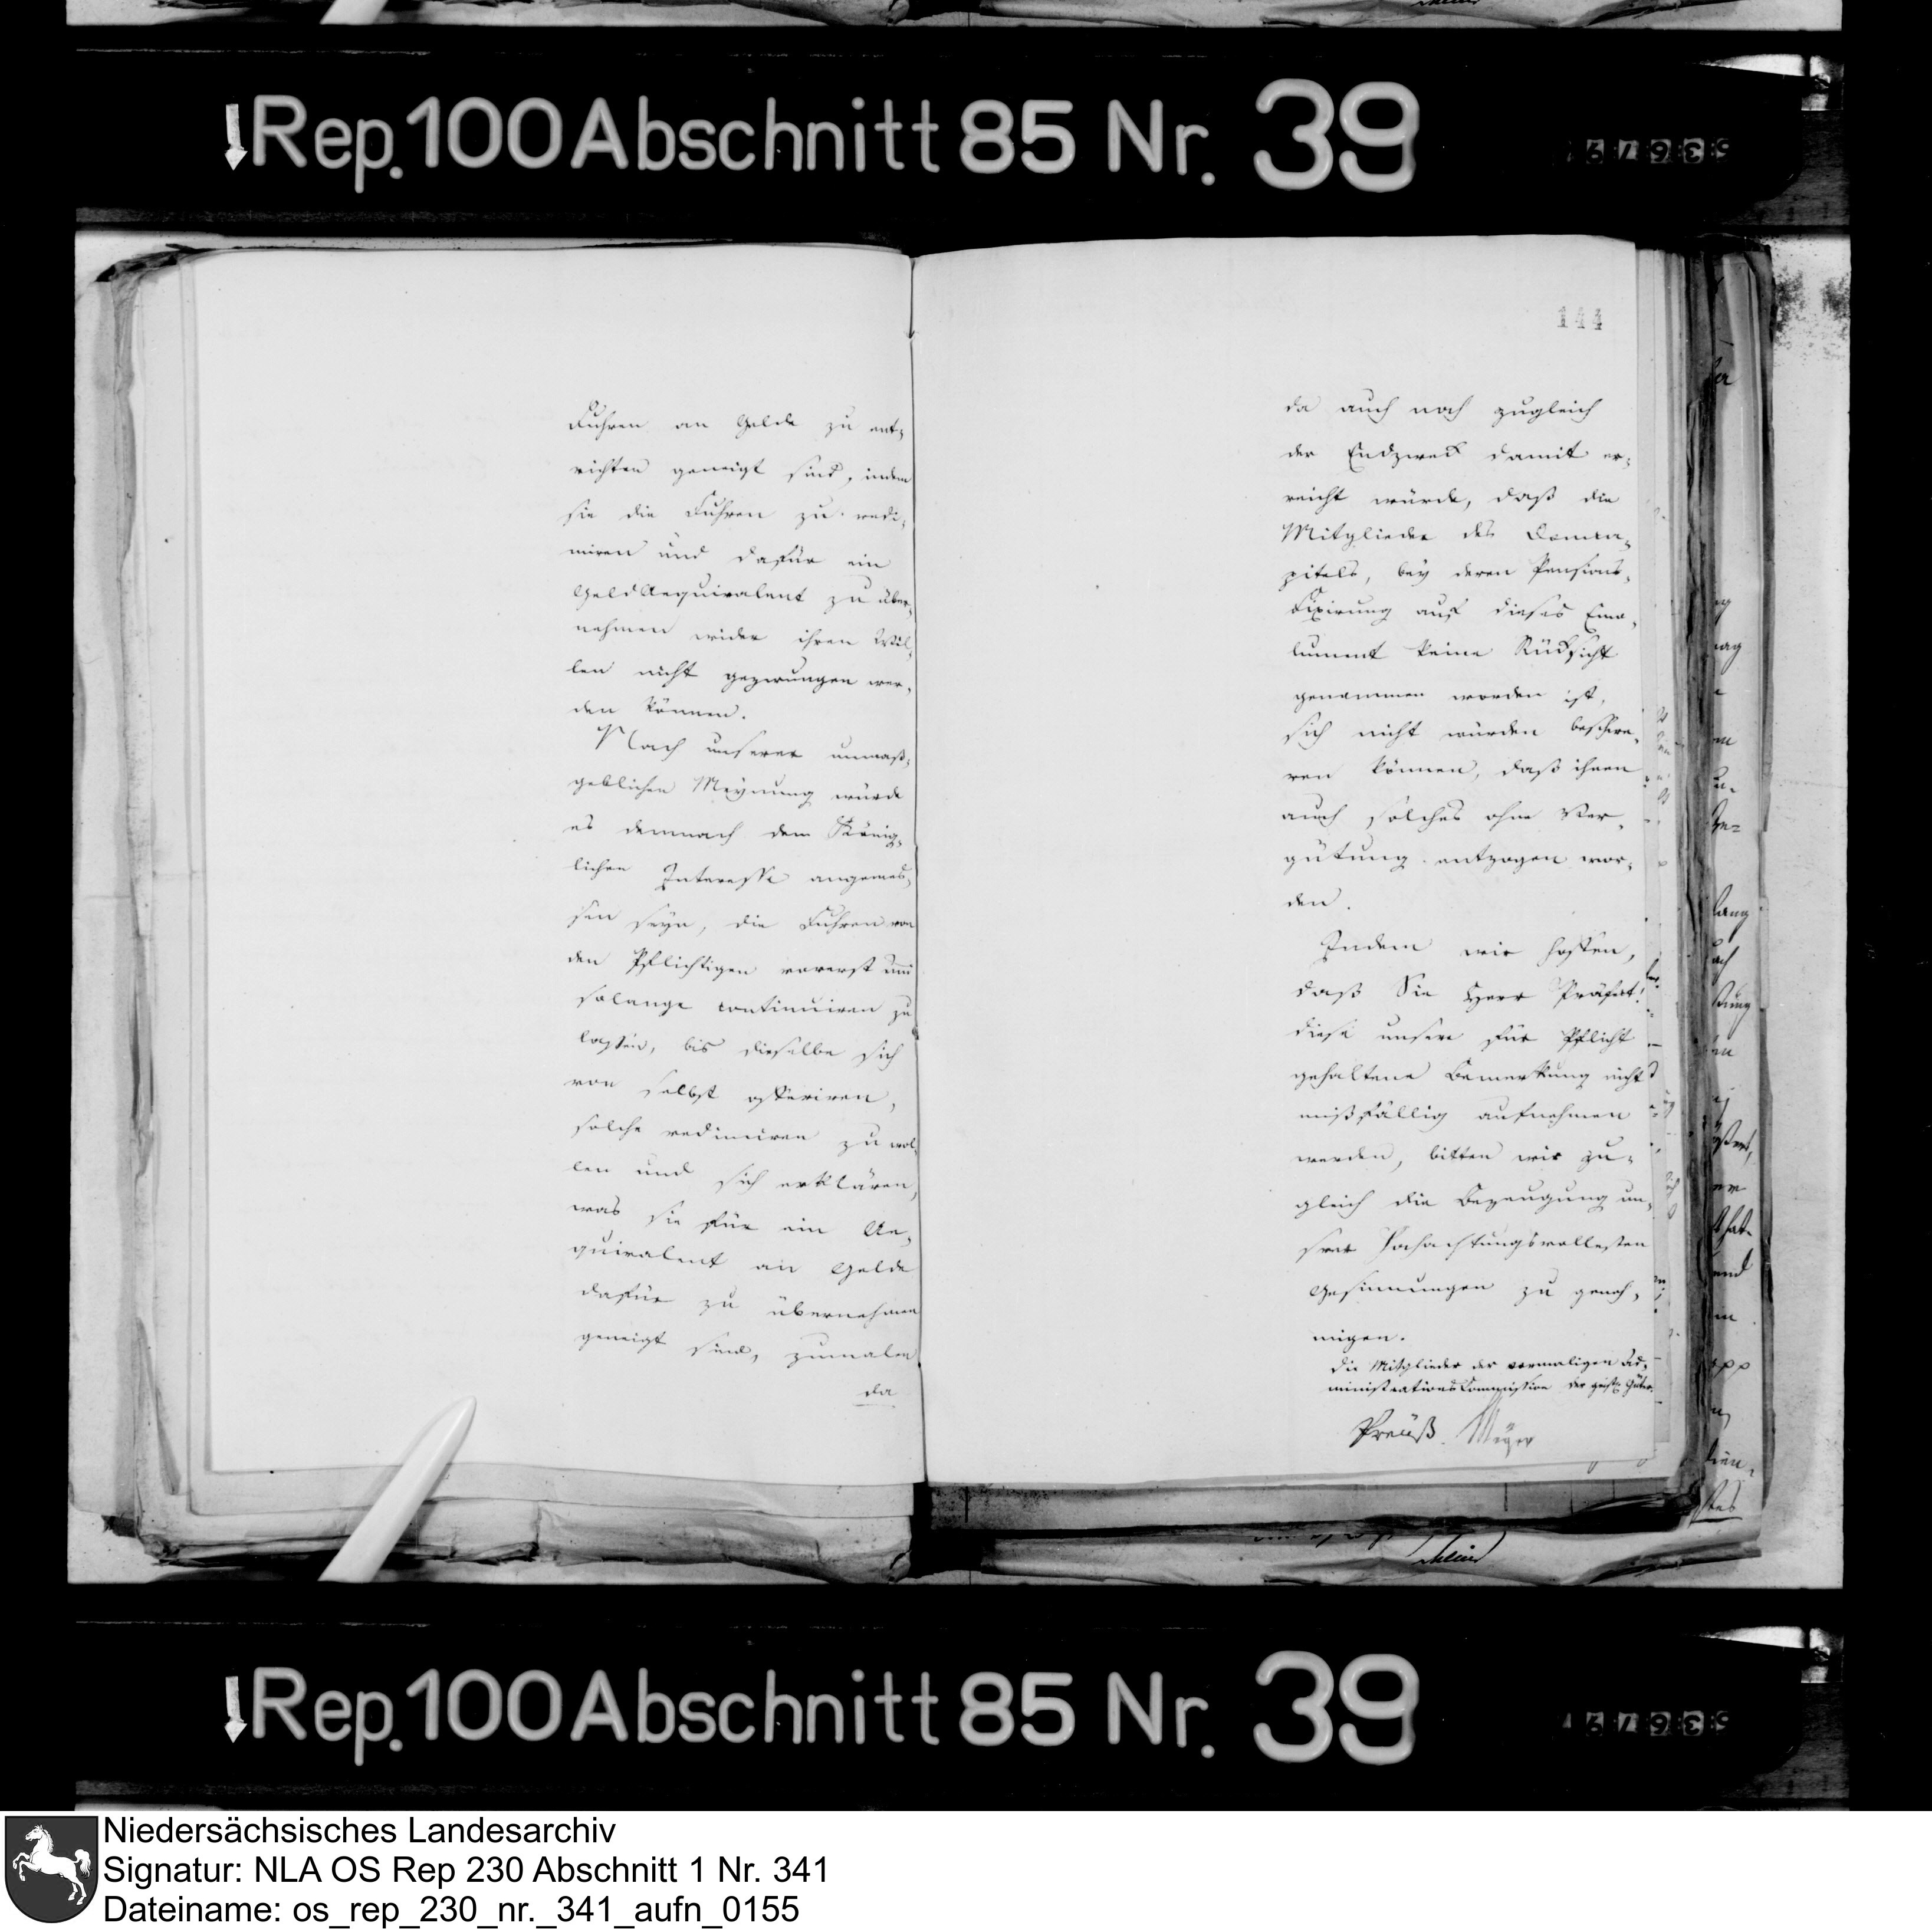 Rep. 100 Abschnitt 85 Nr. 39
Fuhren an Gelde zu ent-
richten geneigt sind, indem
sie die Fuhren zu redi-
miren und dafür ein
GeldAequivalent zu über-
nehmen wider ihren Wil-
len nicht gezwungen wer-
den können.
Nach unserer unmaß-
geblichen Meynung würde
es demnach dem König-
lichen Interesse angemes-
sen seyn, die Fuhren von
den Pflichtigen vorerst und
solange continuiren zu
laßen, bis dieselbe sich
von selbst offeriren,
solche redimiren zu wol-
len und sich erklären,
was sie für ein Ae-
quivalent an Gelde
dafür zu übernehmen
geneigt sind, zumalen
da
144
da auch noch zugleich
der Endzweck damit er-
reicht würde, daß die
Mitglieder des Domca-
pitels, bey deren Pensions-
Fixirung auf dieses Emo-
lument keine Rücksicht
genommen worden ist,
sich nicht würden beschwe-
ren können, daß ihnen
auch solches ohne Ver-
gütung entzogen wor-
den.
Indem wir hoffen,
daß Sie Herr Präfect!
diese unsere für Pflicht
gehaltene Bemerkung nicht
mißfällig aufnehmen
werden, bitten wir zu-
gleich die Bezeugung un-
srer hochachtungsvollesten
Gesinnungen zu geneh-
migen.
Die Mitglieder der vormaligen Ad-
ministrationsCommission der geistl. Güter.
Preuß. Meyer
Rep. 100 Abschnitt 85 Nr. 39
Niedersächsisches Landesarchiv
Signatur: NLA OS Rep 230 Abschnitt 1 Nr. 341
Dateiname: os_rep_230_nr._341_aufn_0155